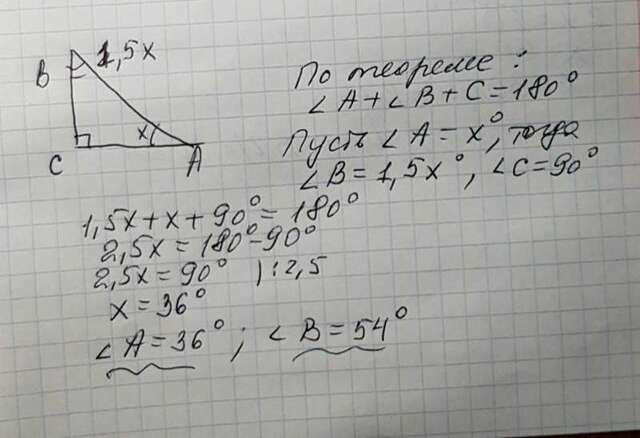 B 1,5x
x
C A
По теореме:
∠A+∠B+C=180°
Пусть ∠A=x°, тогда
∠B=1,5x°, ∠C=90°
1,5x+x+90°=180°
2,5x=180°-90°
2,5x=90° |:2,5
x=36°
∠A=36°; ∠B=54°